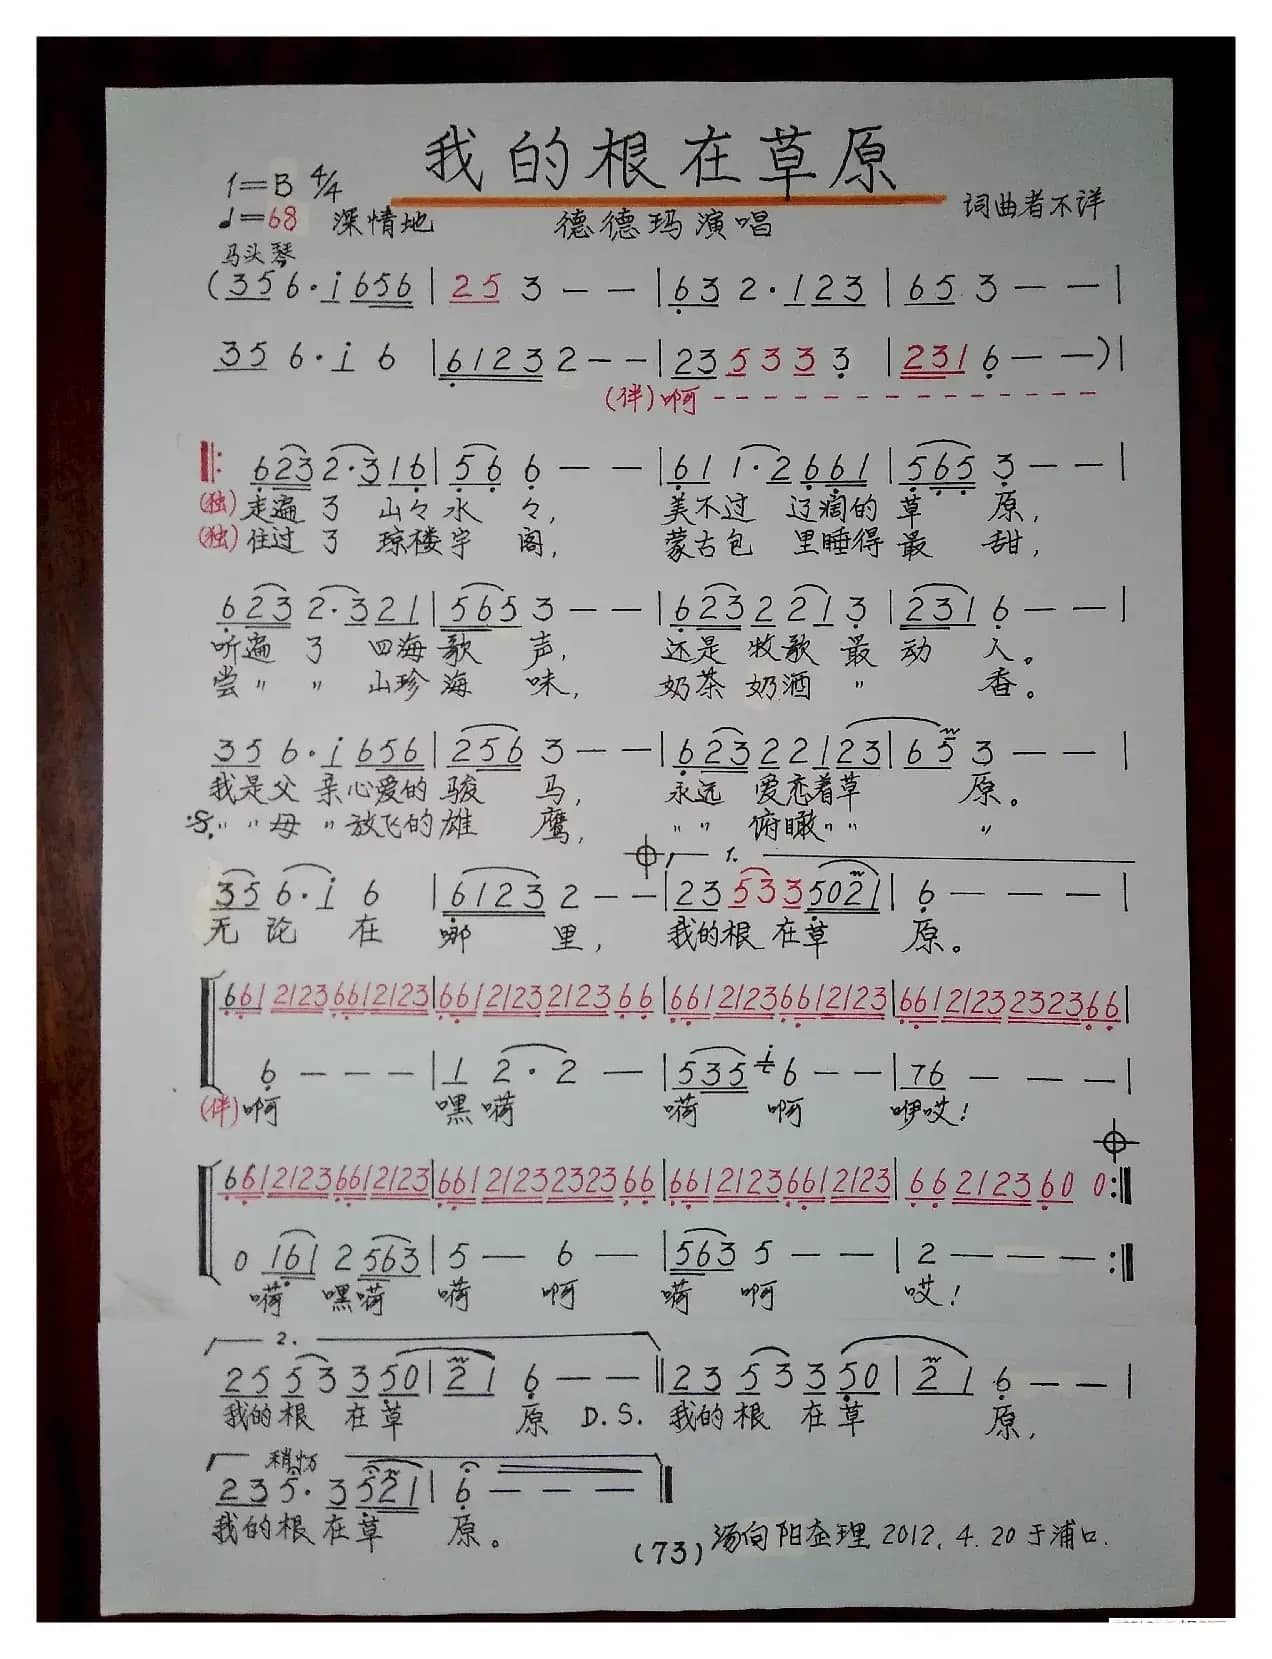 我的根在草原
1=B 4/4
♩=68 深情地 德德玛演唱 词曲者不详
马头琴
(356·i656|253——|632·123|653——|
356·i6|61232——|235333|2316——)|
(伴)啊
6232·316|566——|611·2661|5653——|
(独)走遍了山々水々, 美不过辽阔的草原,
(独)住过了琼楼宇阁, 蒙古包里睡得最甜,
6232·321|5653——|6232213|2316——|
听遍了四海歌声, 还是牧歌最动人。
尝〃〃山珍海味, 奶茶奶酒〃香。
356·i656|2563——|62322123|653——|
我是父亲心爱的骏马, 永远爱恋着草原。
〃〃母〃放飞的雄鹰, 〃〃俯瞰〃〃〃
1.
356·i6|61232——|235335021|6———|
无论在哪里, 我的根在草原。
6612123662123|6612123212366|6612123662123|6612123232366|
6———|12·2—|535i6——|76———|
(伴)啊 嘿嗬 嗬啊 咿哎!
6612123662123|6612123232366|6612123662123|662123600:‖
01612563|5—6—|5635——|2———:‖
嗬嘿嗬嗬啊嗬啊哎!
2.
25533350|216——‖23533350|216——|
我的根在草原 D.S. 我的根在草原,
稍协
235·3521|6———‖
我的根在草原。
(73) 汤向阳整理 2012.4.20于浦口.